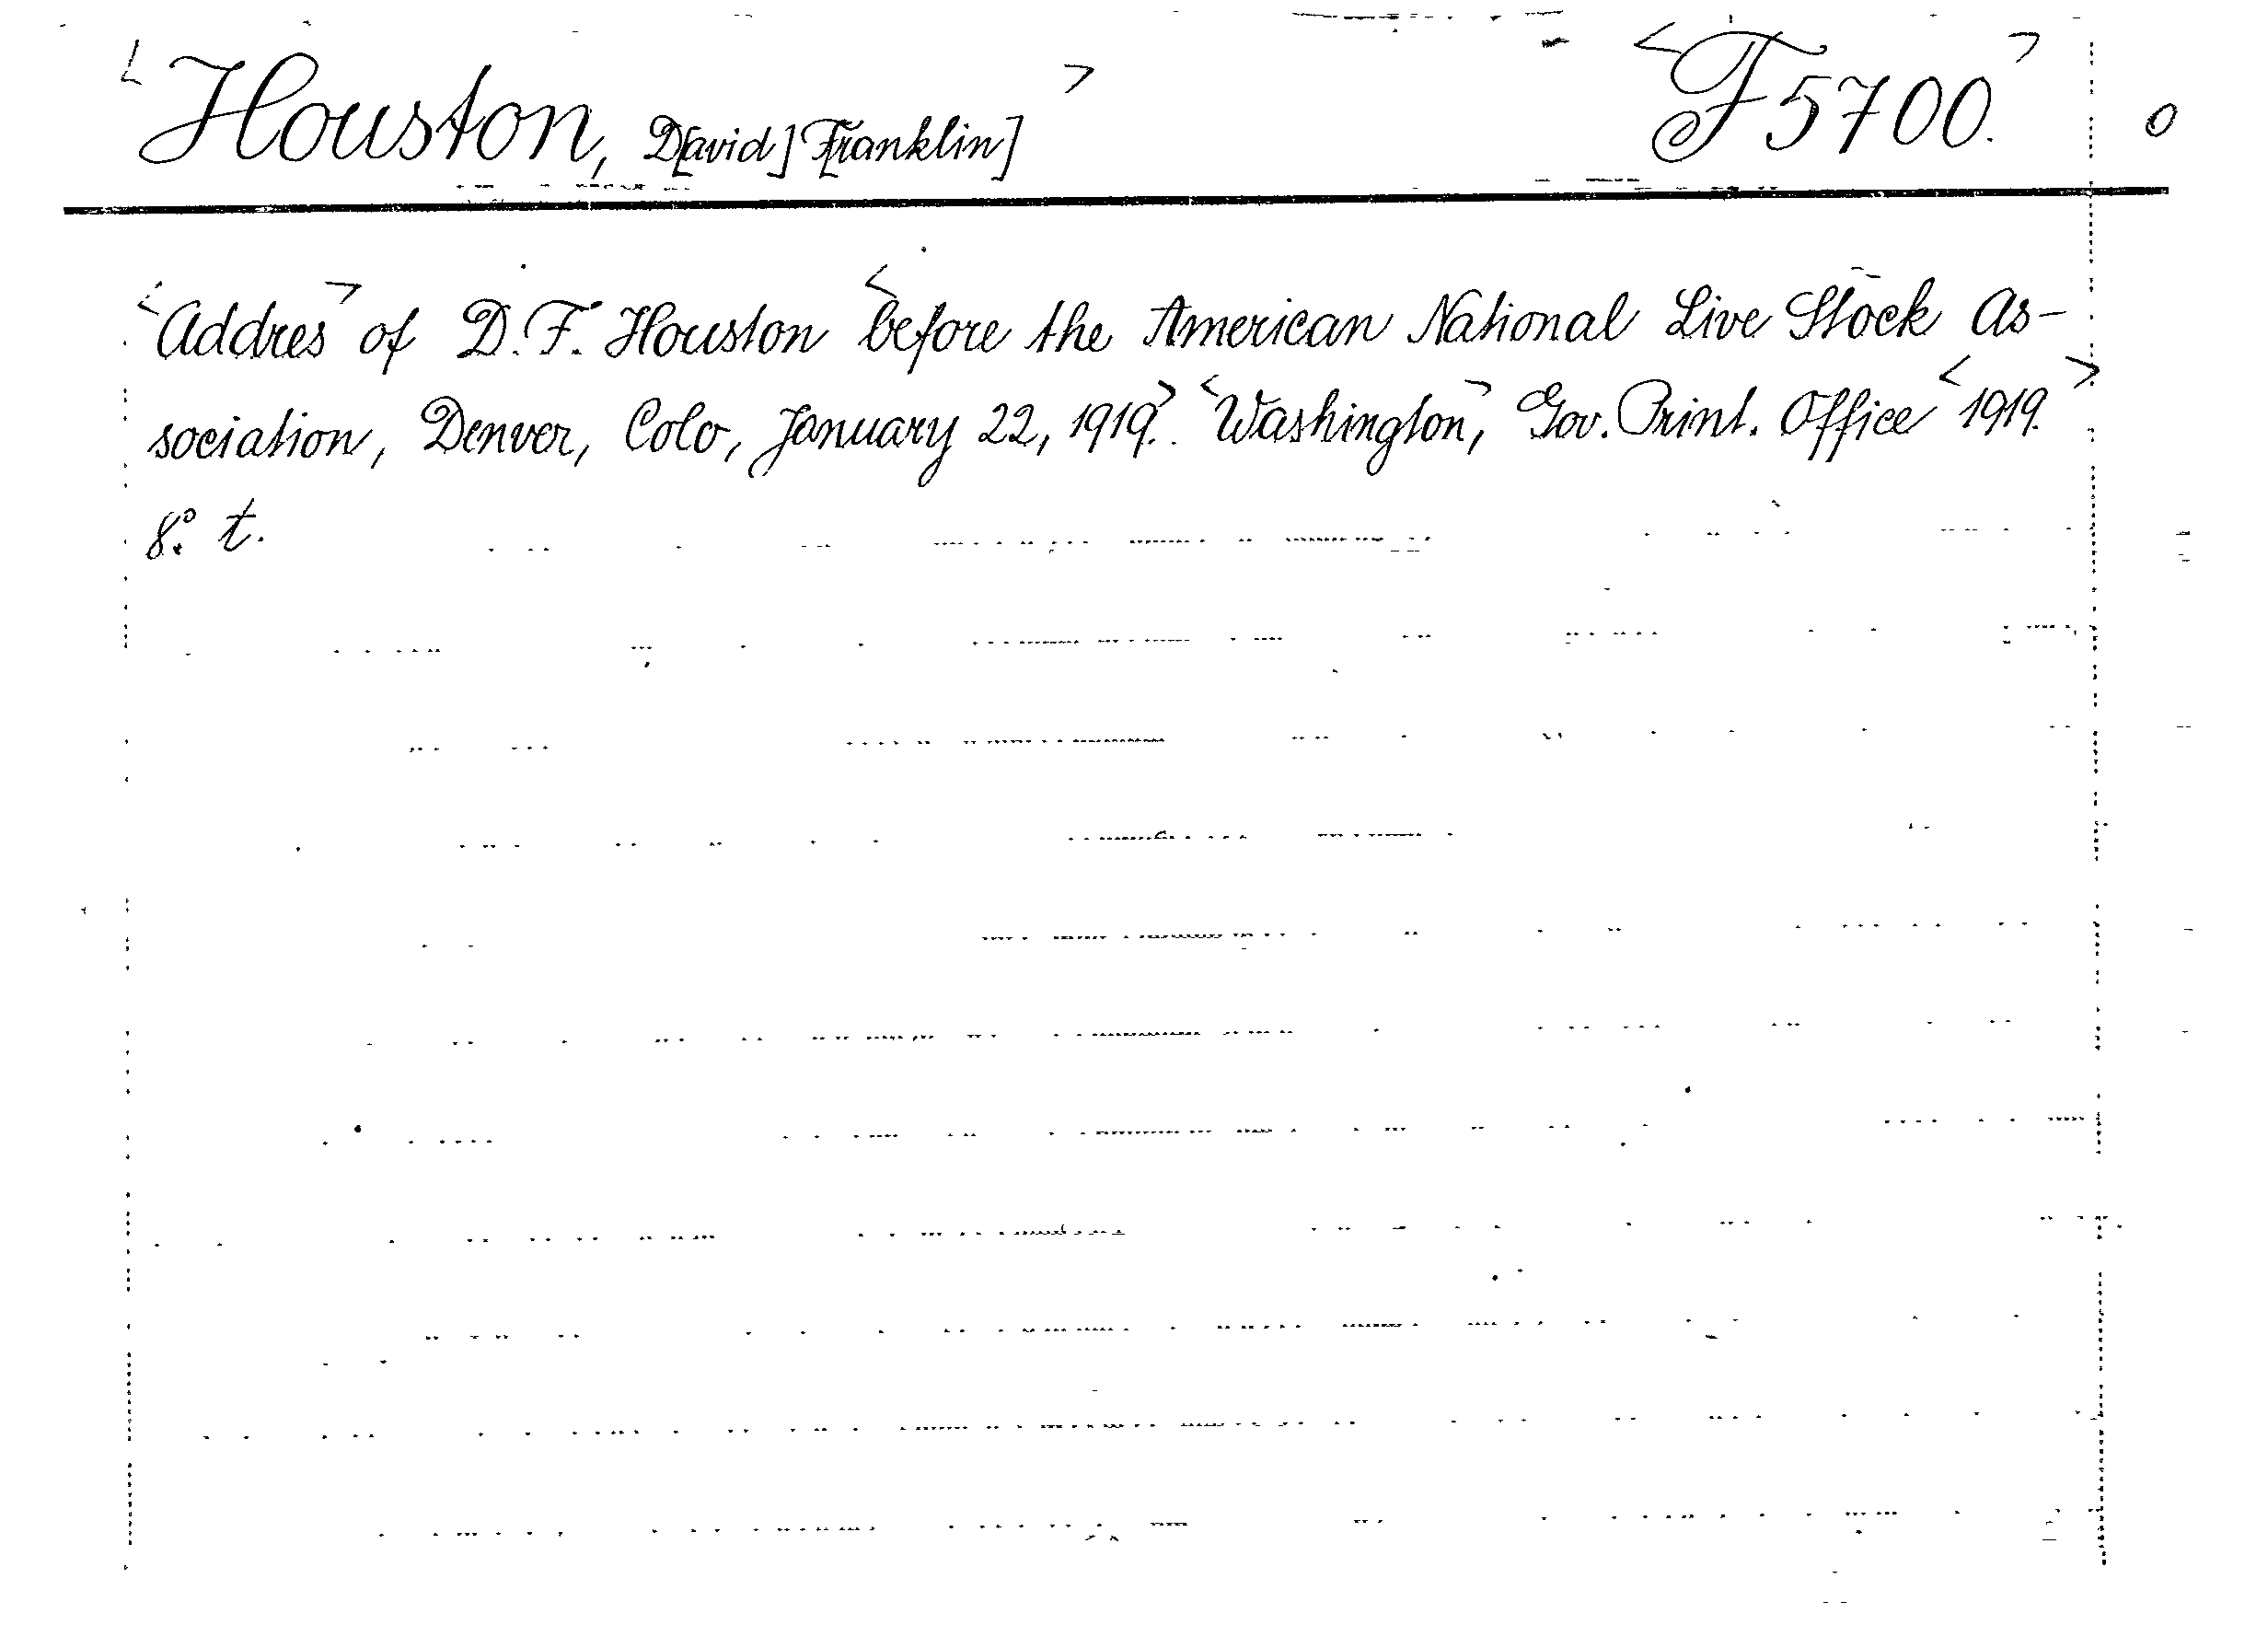 Houston, D[avid] F[ranklin] F5700. 0
Addres of D. F. Houston before the American National Live Stock As-
sociation, Denver, Colo, January 22, 1919. Washington, Gov. Print. Office 1919.
8°. t.